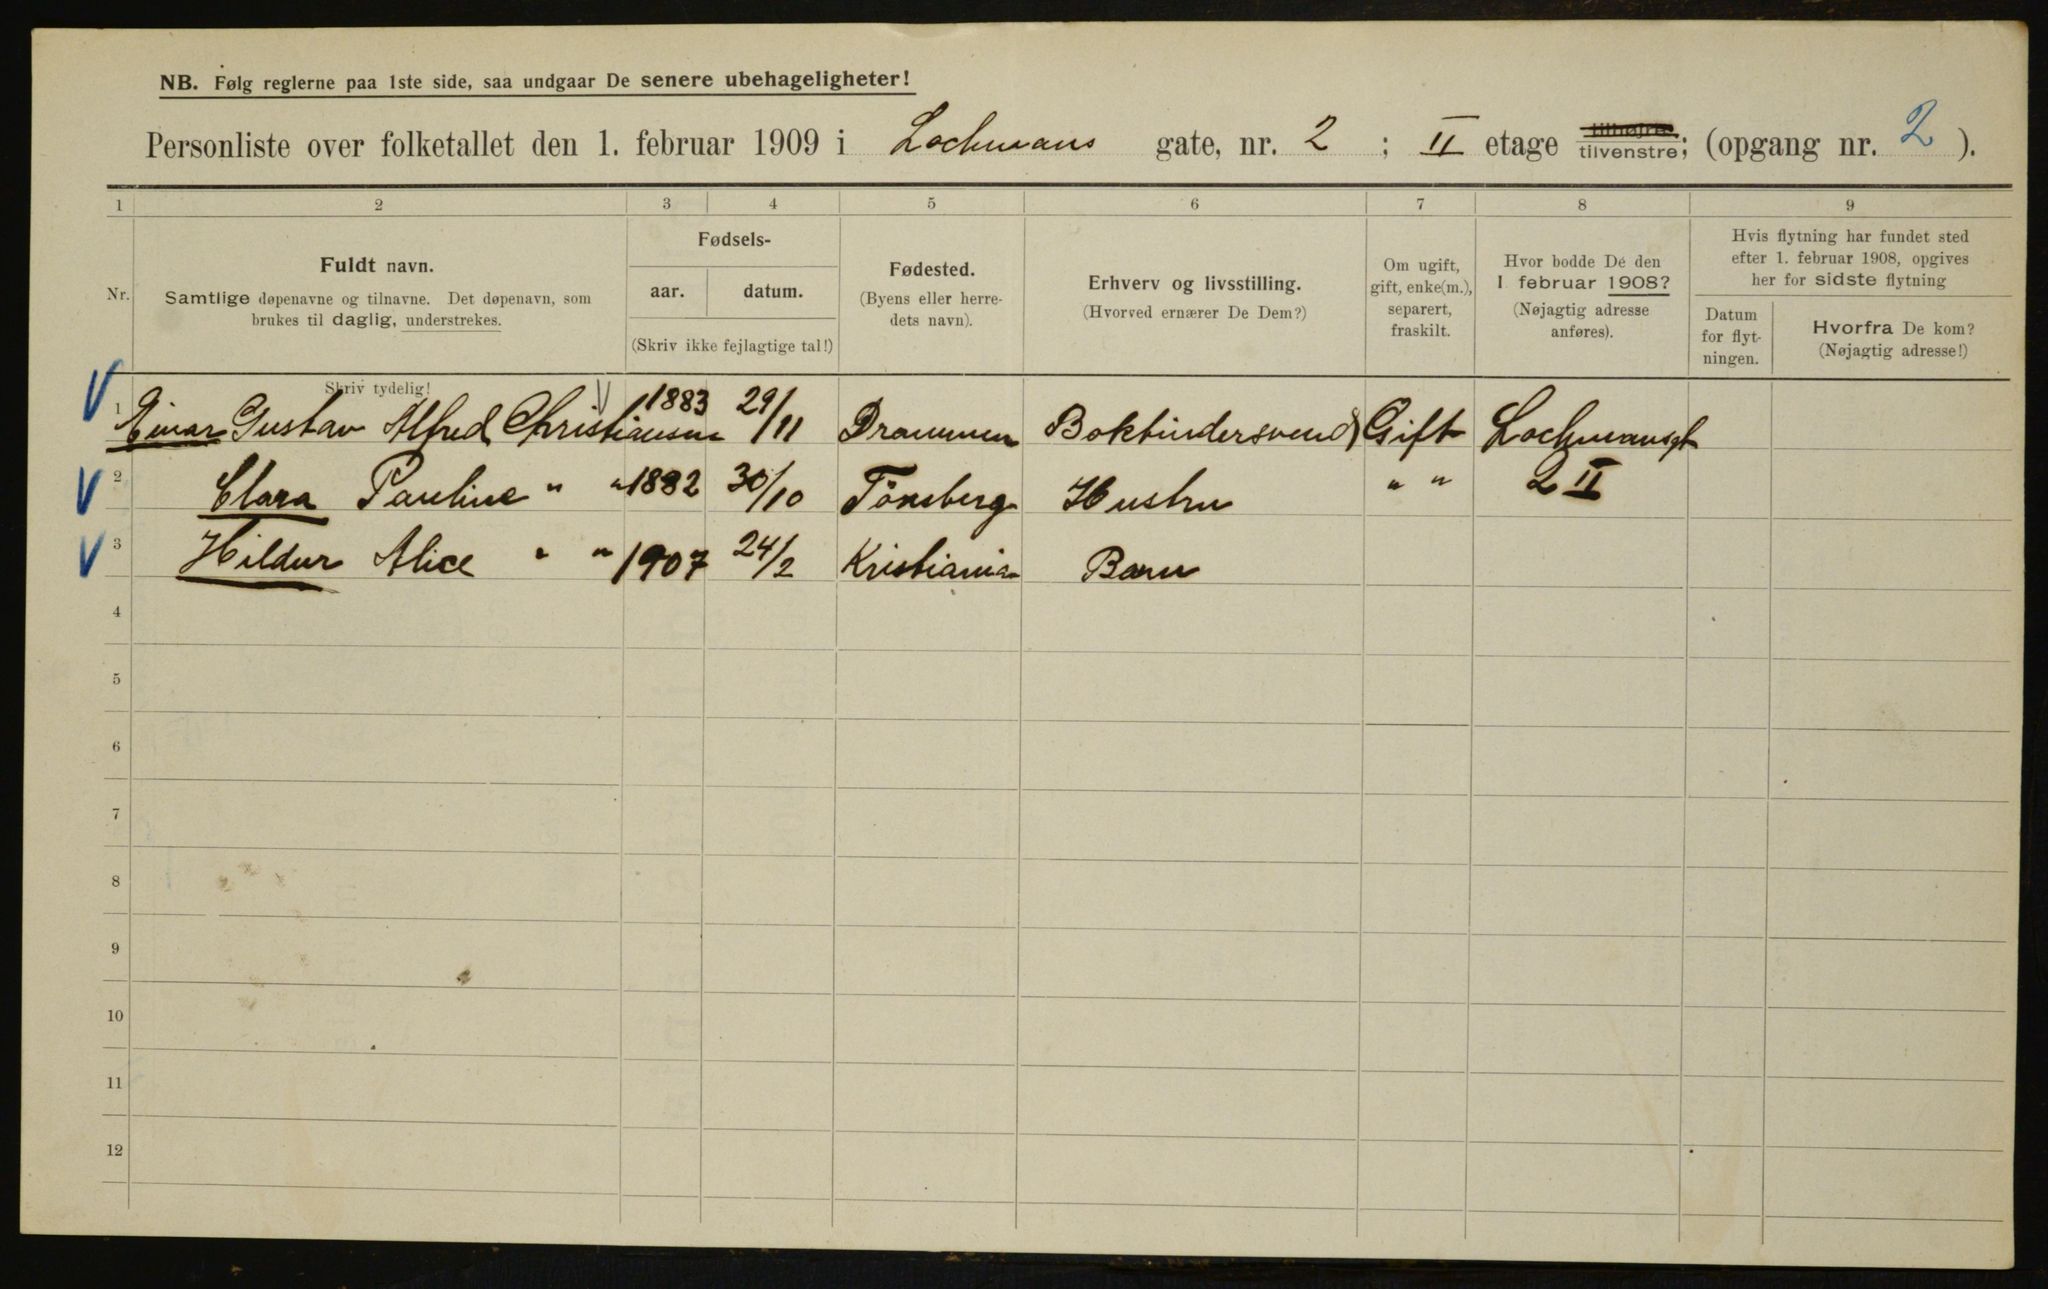 NB. Følg reglerne paa 1ste side, saa undgaar De senere ubehageligheter!
Personliste over folketallet den 1. februar 1909 i Lochmans gate, nr. 2 ; II etage tilhøjre tilvenstre; (opgang nr. 2 ).
1 2 3 4 5 6 7 8 9
Nr.
Fuldt navn.
Samtlige døpenavne og tilnavne. Det døpenavn, som
brukes til daglig, understrekes.
Skriv tydelig!
Fødsels-
aar. datum.
(Skriv ikke fejlagtige tal!)
Fødested.
(Byens eller herre-
dets navn).
Erhverv og livsstilling.
(Hvorved ernærer De Dem?)
Om ugift,
gift, enke(m.),
separert,
fraskilt.
Hvor bodde De den
1 februar 1908?
(Nøjagtig adresse
anføres).
Hvis flytning har fundet sted
efter 1. februar 1908, opgives
her for sidste flytning
Datum
for flyt-
ningen.
Hvorfra De kom?
(Nøjagtig adresse!)
1 Einar Gustav Alfred Christiansen 1883 29/11 Drammen Bokbindersvend Gift Lochmansgt
2 Clara Pauline " " 1882 30/10 Tönsberg Hustru " " 2 II
3 Hildur Alice " " 1907 24/2 Kristiania Barn
4
5
6
7
8
9
10
11
12